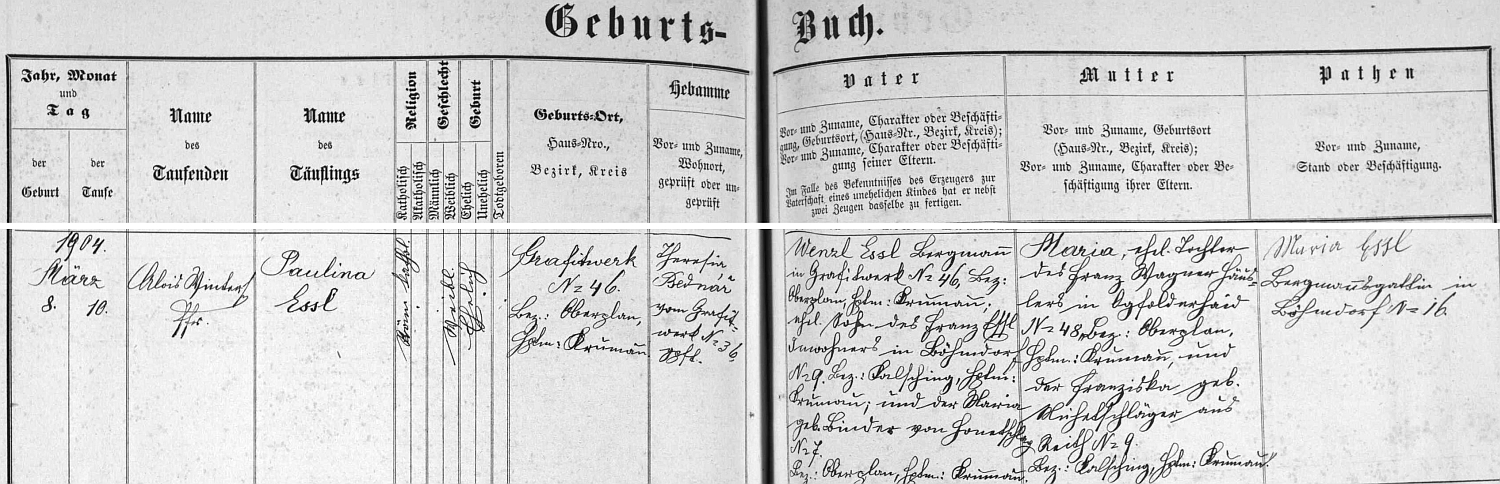 Geburts-Buch.
Jahr, Monat
und
Tag
der
Geburt
der
Taufe
Name
des
Taufenden
Name
des
Täuflings
Religion
Katholisch
Akatholisch
Geschlecht
Männlich
Weiblich
Geburt
Ehelich
Unehelich
Todtgeboren
Geburts-Ort,
Haus-Nro.,
Bezirk, Kreis
Hebamme
Vor- und Zuname,
Wohnort,
geprüft oder un-
geprüft
Vater
Vor- und Zuname, Charakter oder Beschäfti-
gung, Geburtsort, (Haus-Nr., Bezirk, Kreis);
Vor- und Zuname, Charakter oder Beschäfti-
gung seiner Eltern.
Im Falle des Bekenntnisses des Erzeugers zur
Vaterschaft eines unehelichen Kindes hat er nebst
zwei Zeugen dasselbe zu fertigen.
Mutter
Vor- und Zuname, Geburtsort
(Haus-Nr., Bezirk, Kreis);
Vor- und Zuname, Charakter oder Be-
schäftigung ihrer Eltern.
Pathen
Vor- und Zuname,
Stand oder Beschäftigung.
1904.
März
8. 10.
Alois Winter
Pfr.
Paulina
Essl
Röm. kathl.
Weibl.
Ehelich
Grafitwerk
No 46.
Bez.: Oberplan,
Hptm: Krumau.
Theresia
Bednář
vom Grafit-
werk No 36
gpft.
Wenzl Essl Bergmann
in Grafitwerk No 46, Bez:
Oberplan, Hptm: Krumau;
ehel. Sohn des Franz Essl
Inwohners in Böhmdorf
No 9. Bez.: Kalsching, Hptm:
Krumau; und der Maria
geb. Binder von Honetschlag
No 7.
Bez.: Oberplan, Hptm: Krumau.
Maria, ehel. Tochter
des Franz Wagner Häus-
lers in Ogfolderhaid
No 48, Bez.: Oberplan,
Hptm: Krumau, und
der Franziska geb.
Michetschläger aus
Reith No 9.
Bez.: Kalsching, Hptm: Krumau.
Maria Essl
Bergmannsgattin in
Böhmdorf No 16.